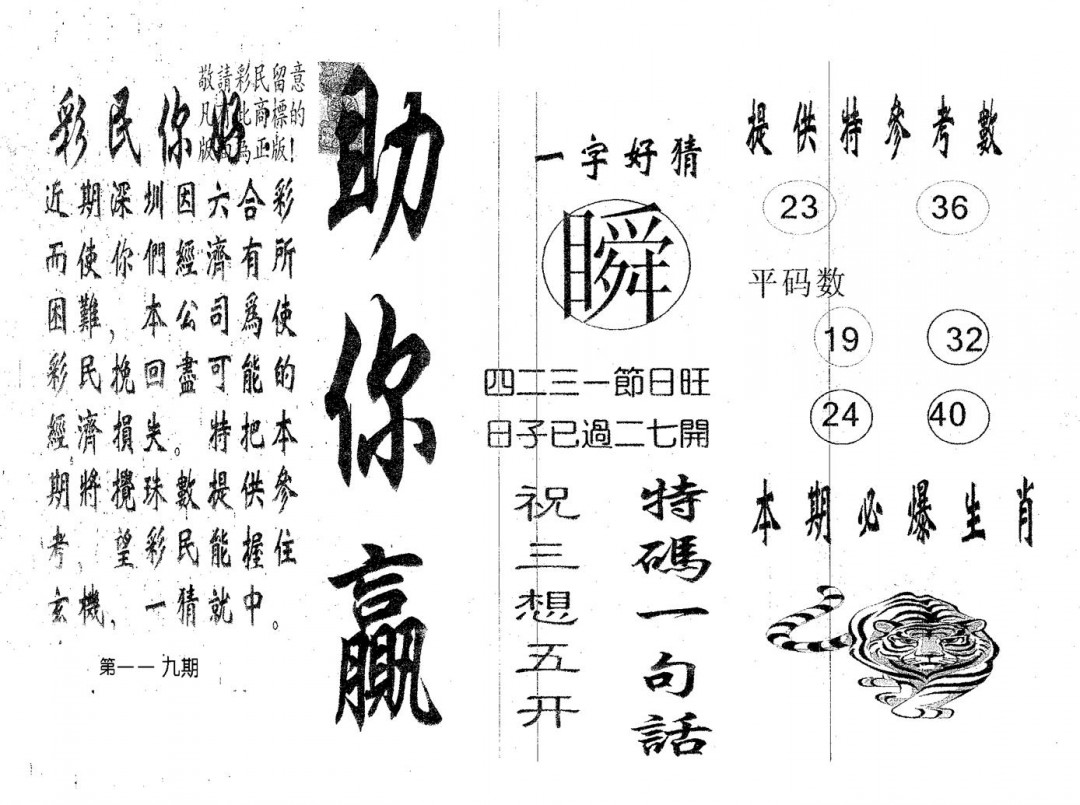 敬請彩民留意
凡 此商標的
版 為正版！
彩民你好
近期深圳因六合彩
而使你們經濟有所
困難，本公司爲使
彩民挽回盡可能的
經濟損失。特把本
期將攪珠數提供參
考，望彩民能握住
玄機，一猜就中。
第一一九期
助你贏
一字好猜
瞬
四二三一節日旺
日子已過二七開
特碼一句話
祝三想五开
提供特參考數
23 36
平码数
19 32
24 40
本期必爆生肖